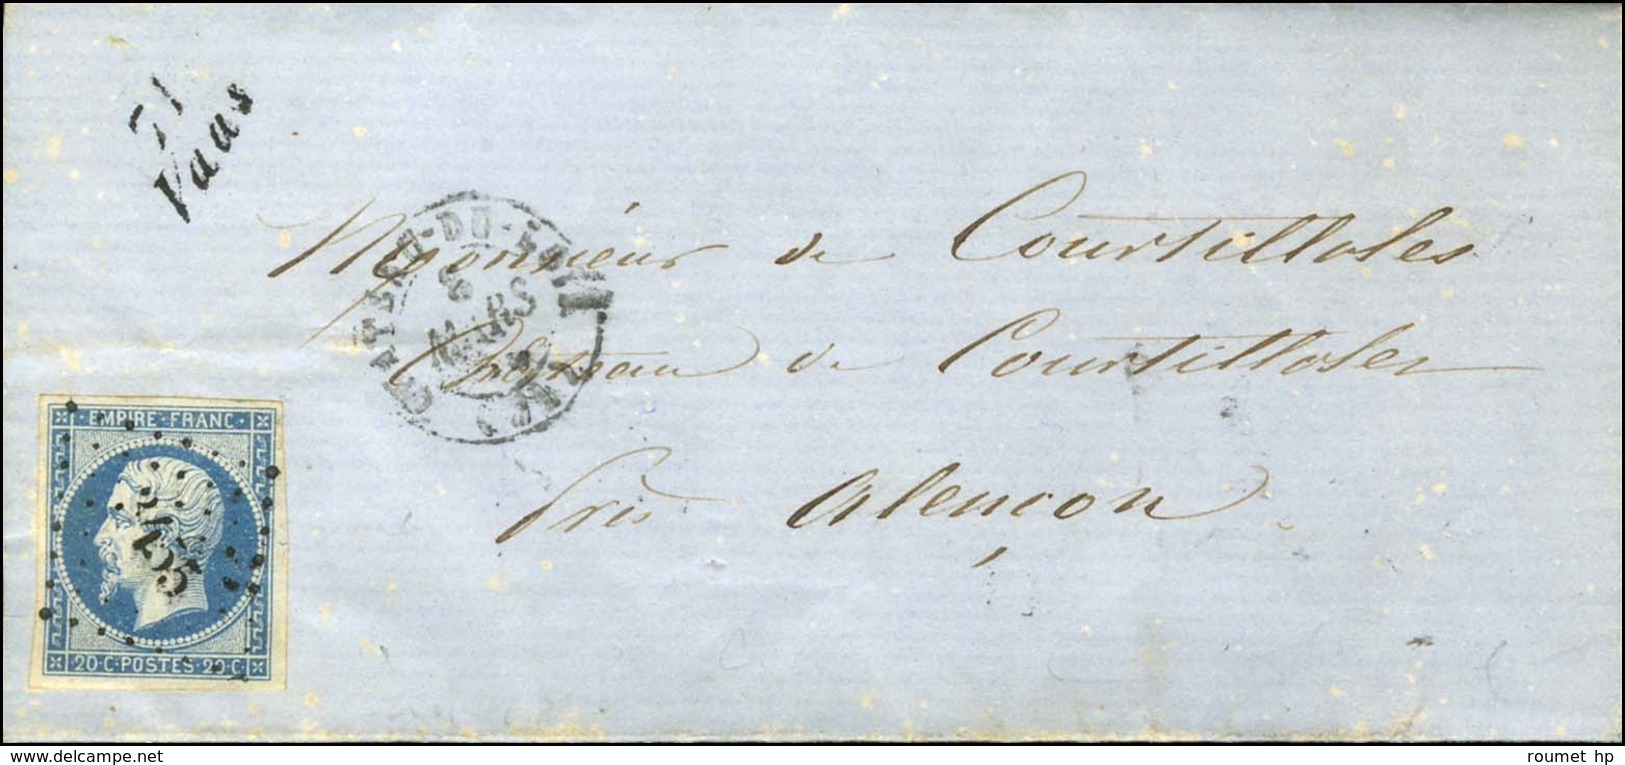 71
Vaas
CHATEAU-DU-LOIR
8
MARS
Monsieur de Courtilloles
Château de Courtilloles
près Alençon
EMPIRE FRANC
3455
20·C·POSTES·20·C
www.delcampe.net
roumet hp